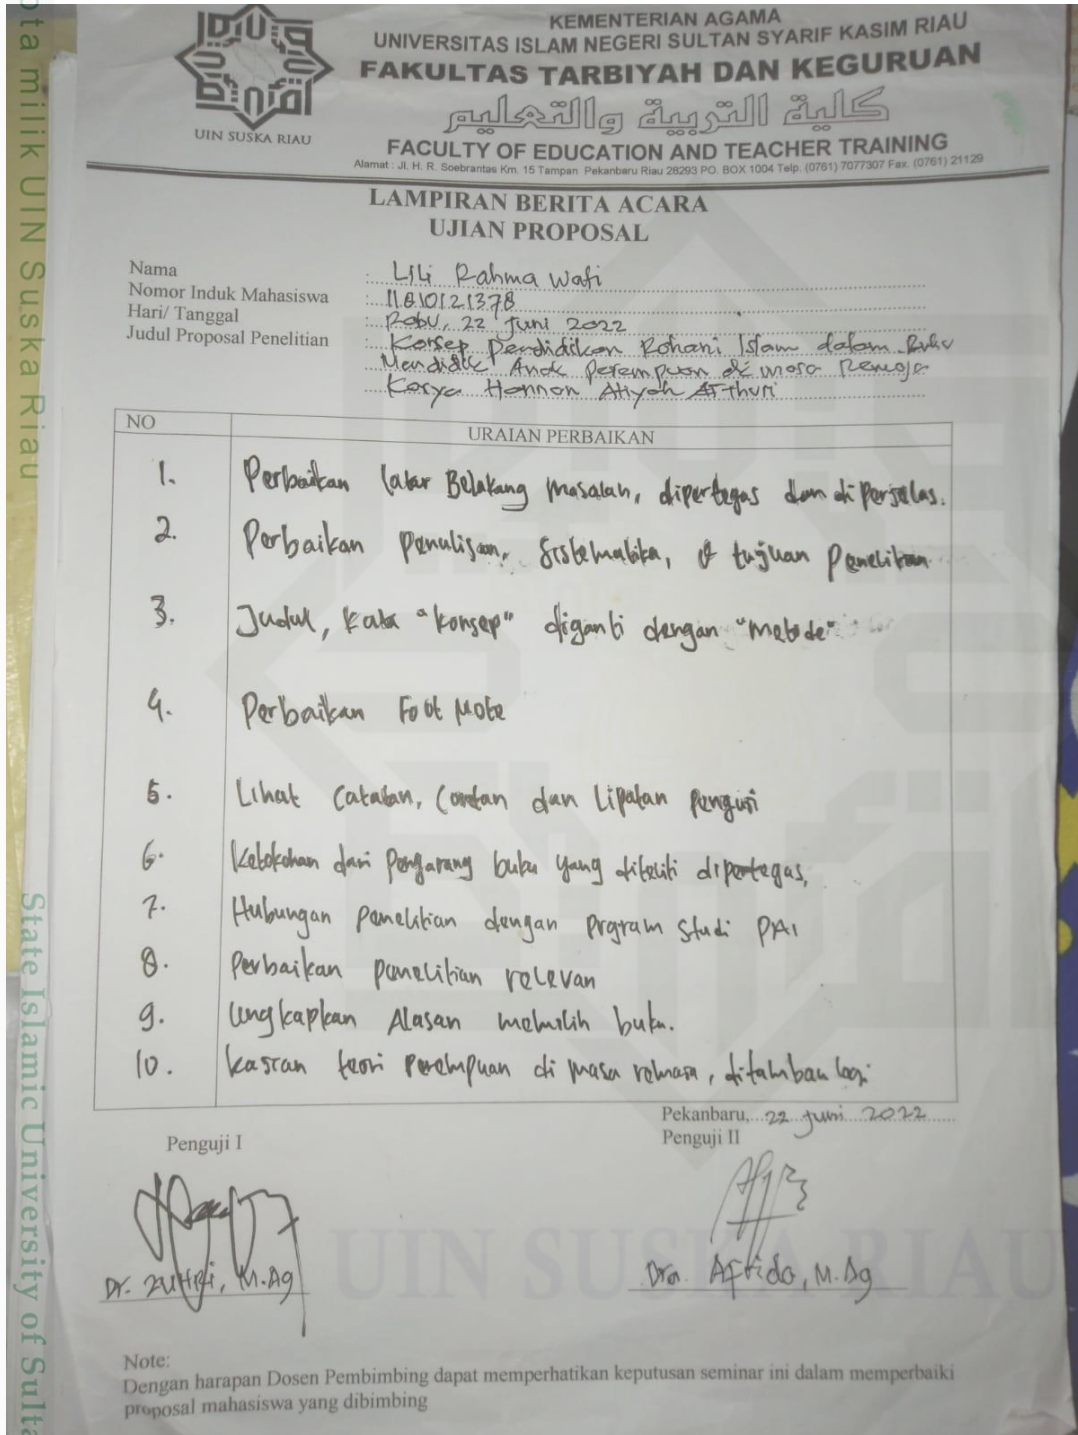 ota milik UIN Suska Riau
State Islamic University of Sulta
UIN SUSKA RIAU
KEMENTERIAN AGAMA
UNIVERSITAS ISLAM NEGERI SULTAN SYARIF KASIM RIAU
FAKULTAS TARBIYAH DAN KEGURUAN
كلية التربية والتعليم
FACULTY OF EDUCATION AND TEACHER TRAINING
Alamat : Jl. H. R. Soebrantas Km. 15 Tampan Pekanbaru Riau 28293 PO. BOX 1004 Telp. (0761) 7077307 Fax. (0761) 21129
LAMPIRAN BERITA ACARA
UJIAN PROPOSAL
Nama : Lili Rahma Wati
Nomor Induk Mahasiswa : 11810121378
Hari/ Tanggal : Rabu, 22 Juni 2022
Judul Proposal Penelitian : Konsep Pendidikan Rohani Islam dalam Buku
Mendidik Anak Perempuan di masa Remaja
Karya Hannan Atiyah Ath-Thuri
NO URAIAN PERBAIKAN
1. Perbaikan latar Belakang masalah, dipertegas dan diperjelas.
2. Perbaikan penulisan, sistematika, & tujuan penelitian
3. Judul, kata "konsep" diganti dengan "metode"
4. Perbaikan Foot Note
5. Lihat catatan, coretan dan Lipatan penguji
6. Ketokohan dari pengarang buku yang diteliti dipertegas,
7. Hubungan penelitian dengan prgram studi PAI
8. Perbaikan penelitian relevan
9. Ungkapkan Alasan memilih buku.
10. kajian teori perempuan di masa remaja, ditambah lagi
Pekanbaru, 22 Juni 2022
Penguji I Penguji II
Dr. Zuhri, M.Ag Dra. Afrida, M.Ag
UIN SUSKA RIAU
Note:
Dengan harapan Dosen Pembimbing dapat memperhatikan keputusan seminar ini dalam memperbaiki
proposal mahasiswa yang dibimbing